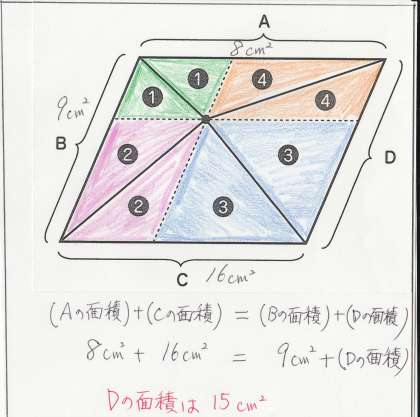 A
8cm²
9cm²
B
❶ ❶ ❹ ❹
❷ ❸
❷ ❸
D
C 16cm²
(Aの面積)+(Cの面積) = (Bの面積)+(Dの面積)
8cm² + 16cm² = 9cm² + (Dの面積)
Dの面積は 15cm²